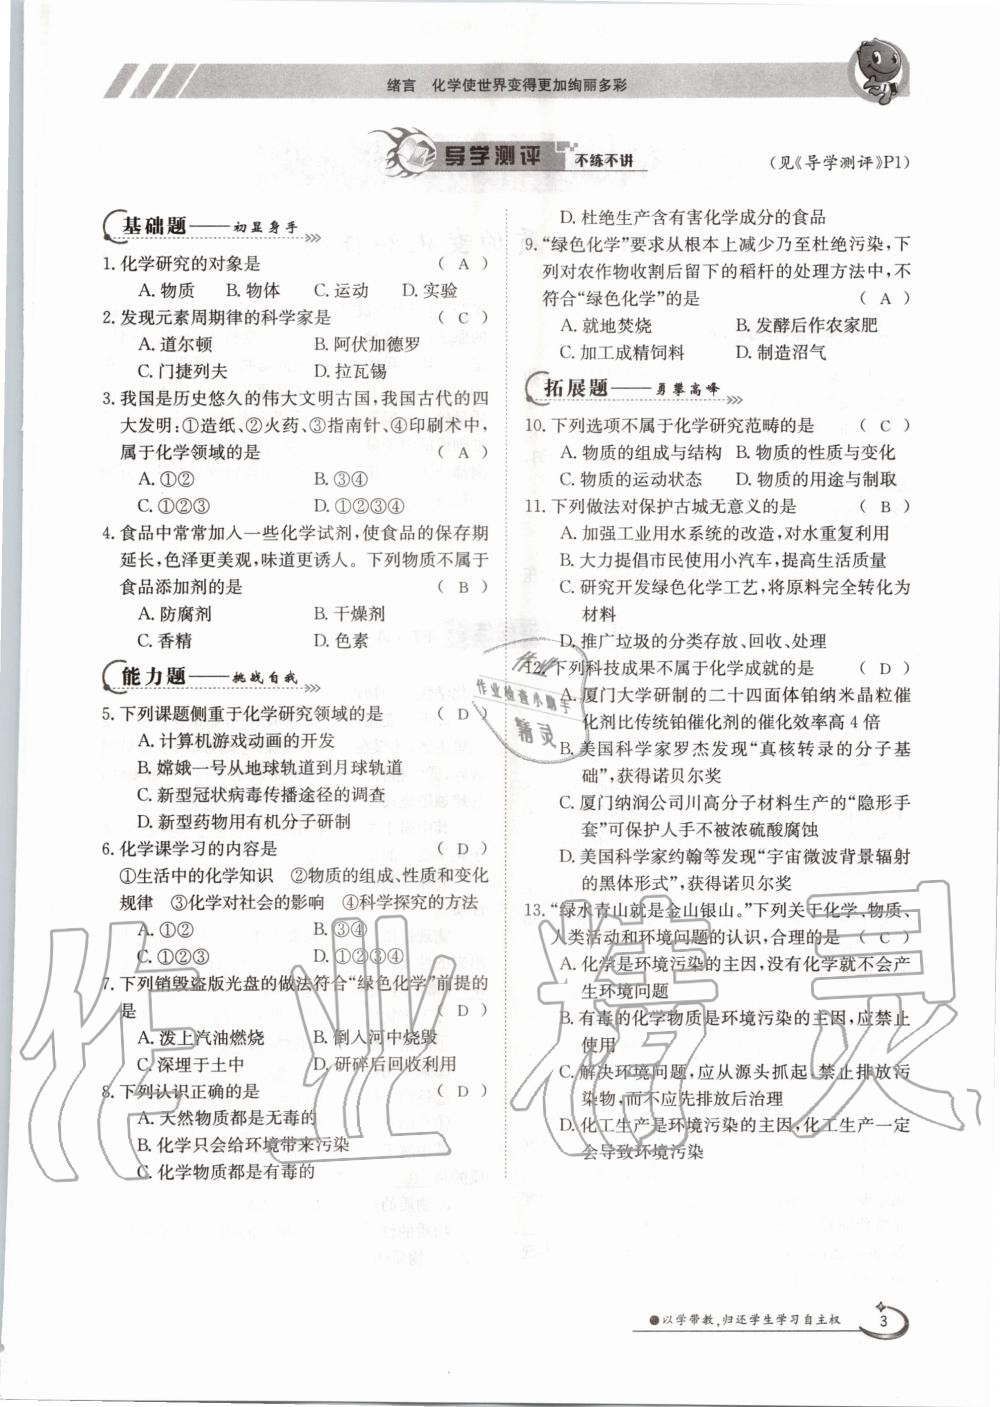 绪言　化学使世界变得更加绚丽多彩
导学测评 不练不讲
(见《导学测评》P1)
基础题——初显身手
1. 化学研究的对象是 ( A )
A. 物质 B. 物体 C. 运动 D. 实验
2. 发现元素周期律的科学家是 ( C )
A. 道尔顿 B. 阿伏加德罗
C. 门捷列夫 D. 拉瓦锡
3. 我国是历史悠久的伟大文明古国,我国古代的四
大发明:①造纸、②火药、③指南针、④印刷术中,
属于化学领域的是 ( A )
A. ①② B. ③④
C. ①②③ D. ①②③④
4. 食品中常常加入一些化学试剂,使食品的保存期
延长,色泽更美观,味道更诱人。下列物质不属于
食品添加剂的是 ( B )
A. 防腐剂 B. 干燥剂
C. 香精 D. 色素
能力题——挑战自我
5. 下列课题侧重于化学研究领域的是 ( D )
A. 计算机游戏动画的开发
B. 嫦娥一号从地球轨道到月球轨道
C. 新型冠状病毒传播途径的调查
D. 新型药物用有机分子研制
6. 化学课学习的内容是 ( D )
①生活中的化学知识 ②物质的组成、性质和变化
规律 ③化学对社会的影响 ④科学探究的方法
A. ①② B. ③④
C. ①②③ D. ①②③④
7. 下列销毁盗版光盘的做法符合“绿色化学”前提的
是 ( D )
A. 泼上汽油燃烧 B. 倒入河中烧毁
C. 深埋于土中 D. 研碎后回收利用
8. 下列认识正确的是 ( D )
A. 天然物质都是无毒的
B. 化学只会给环境带来污染
C. 化学物质都是有毒的
D. 杜绝生产含有害化学成分的食品
9. “绿色化学”要求从根本上减少乃至杜绝污染,下
列对农作物收割后留下的稻杆的处理方法中,不
符合“绿色化学”的是 ( A )
A. 就地焚烧 B. 发酵后作农家肥
C. 加工成精饲料 D. 制造沼气
拓展题——勇攀高峰
10. 下列选项不属于化学研究范畴的是 ( C )
A. 物质的组成与结构 B. 物质的性质与变化
C. 物质的运动状态 D. 物质的用途与制取
11. 下列做法对保护古城无意义的是 ( B )
A. 加强工业用水系统的改造,对水重复利用
B. 大力提倡市民使用小汽车,提高生活质量
C. 研究开发绿色化学工艺,将原料完全转化为
材料
D. 推广垃圾的分类存放、回收、处理
12. 下列科技成果不属于化学成就的是 ( D )
A. 厦门大学研制的二十四面体铂纳米晶粒催
化剂比传统铂催化剂的催化效率高 4 倍
B. 美国科学家罗杰发现“真核转录的分子基
础”,获得诺贝尔奖
C. 厦门纳润公司川高分子材料生产的“隐形手
套”可保护人手不被浓硫酸腐蚀
D. 美国科学家约翰等发现“宇宙微波背景辐射
的黑体形式”,获得诺贝尔奖
13. “绿水青山就是金山银山。”下列关于化学、物质、
人类活动和环境问题的认识,合理的是 ( C )
A. 化学是环境污染的主因,没有化学就不会产
生环境问题
B. 有毒的化学物质是环境污染的主因,应禁止
使用
C. 解决环境问题,应从源头抓起 禁止排放污
染物,而不应先排放后治理
D. 化工生产是环境污染的主因,化工生产一定
会导致环境污染
作业
作业检查小助手
精灵
作业精灵
●以学带教,归还学生学习自主权
3